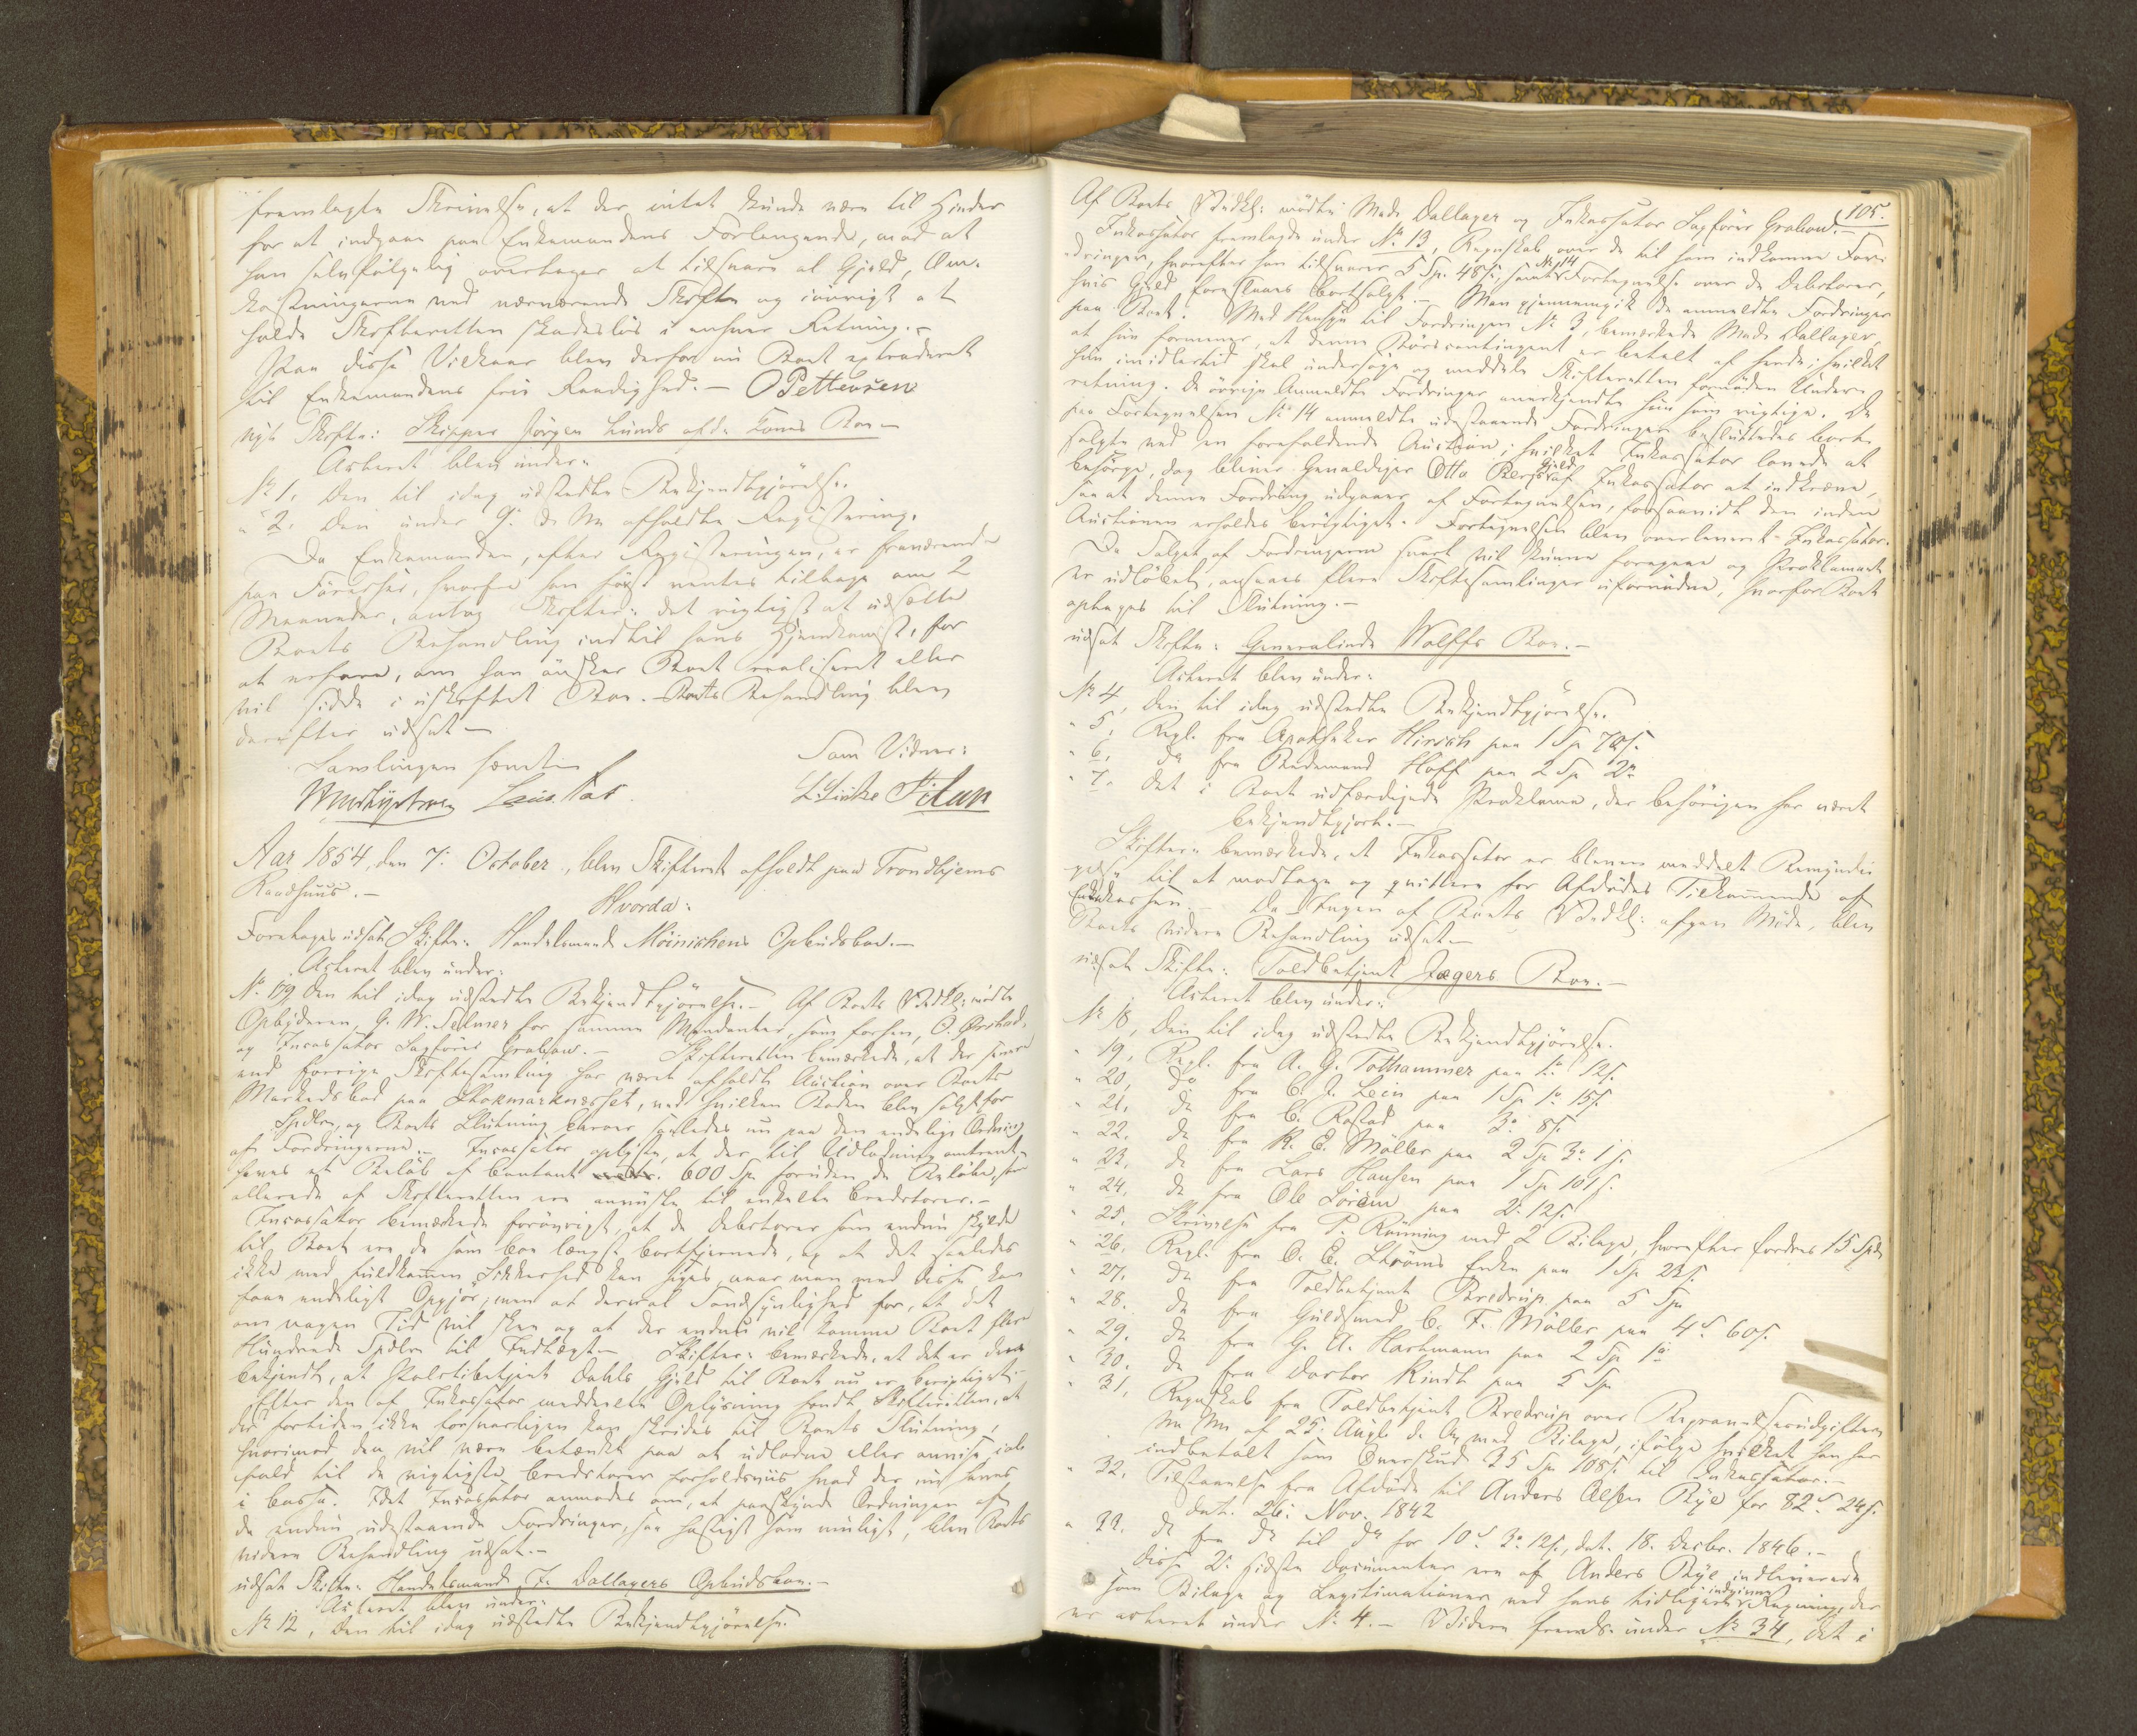 fremlagte Skrivelse, at der intet kunde være til Hinder
for at indgaae paa Enkemandens Forlangende, mod at
han selvfølgelig overtager at tilsvare al Gjeld, Om-
kostningerne ved nærværende Skifte og iøvrigt at
holde Skifteretten skadesløs i enhver Retning.-
Paa disse Vilkaar blev derfor nu Boet extraderet
til Enkemandens frie Raadighed.- O Pettersen
nyt Skifte: Skipper Jörgen Lunds afd. Kones Boe-
Acteret blev under:
No 1, Den til idag udstedte Bekjendtgjörelse.
" 2. Den under 9. d. M. afholdte Registrering.
Da Enkemanden, efter Registreringen, er fraværende
paa Söreise, hvorfra han först ventes tilbage om 2
Maaneder, antog Skifter: det rigtigst at udsætte
Boets Behandling indtil hans Hjemkomst, for
at erfare, om han önsker Boet realiseret eller
vil sidde i uskiftet Boe. Boets Behandling blev
derefter udsat-
Samlingen hævet Som Vidner:
Aar 1854, den 7: October, blev Skifteret afholdt paa Trondhjems
Raadhuus.-
Hvorda:
Foretages udsat Skifte: Handelsmand Möinichens Opbudsboe.-
Acteret blev under:
No 179, Den til idag udstedte Bekjendtgjörelse.- Af Boets Vedk: mödte
Opbyderen, G. W. Selmer for samme Mandanter, som forhen, O.
og Incassator Sagförer Grabow.- Skifteretten bemærkede, at der siden
end forrige Skiftesamling har været afholdt Auction over Boets
Markedsbod paa Stokmarknæsset, ved hvilken Boden blev solgt for
Spdlr, og Boets Slutning beroer saaledes nu paa den endelige Ordning
af Fordringerne.- Incassator oplyste, at der til Udlodning omtrent
haves et Beløb af Contant 600 Sp. foruden de Beløbe, som
allerede af Skifteretten ere anviste til enkelte Creditorer.-
Incassator bemærkede forövrigt, at de Debitorer som endnu skylde
til Boet ere de som boe længst bortfjernede, og at det saaledes
ikke med fuldkommen Sikkerhed kan siges, naar man med disse kan
faae endeligt Opgjör; men at der var Sandsynlighed for, at det
om nogen Tid vil skee og at der endnu vil komme Boet flere
Hundrede Spdlr. til Indtægt- Skifter: bemærkede, at det er den
bekjendt, at Politibetjent Dahls Gjeld til Boet nu er berigtiget.
Efter den af Inkassator meddeelte Oplysning fandt Skifteretten, at
der fortiden ikke forsvarligen kan skrides til Boets Slutning,
hvorimod den vil være betænkt paa at udlodne eller anvise ialt
fald til de vigtigste Creditorer forholdsviis hvad der nu haves
i Cassa. Idet Incassator anmodes om, at paaskynde Ordningen af
de endnu udestaaende Fordringer, saa hastigt som muligt, blev Boets
videre Behandling udsat.-
udsat Skifte: Handelsmand J. Dallagers Opbudsboe.-
Acteret blev under:
No 12, Den til idag udstedte Bekjendtgjörelse.
105.
Af Boets Vedkl: mödte Mad. Dallager og Inkassator Sagförer Grabow.-
Inkassator fremlagde under No 13, Regnskab over de til ham indkomne For-
dringer, hvorefter han tilsvarer 5 Sp. 48 s, samt No 14 Fortegnelse over de Debitorer,
hvis Gjeld foreslaaes bortsolgt.- Man gjennemgik de anmeldte Fordringer
paa Boet. Med Hensyn til Fordringen No 3, bemærkede Mad. Dallager,
at hun formener, at denne Börscontingent er betalt af hende; hvilket
hun imidlertid skal undersöge og meddele Skifteretten fornöden Under-
retning. De övrige Anmeldte Fordringer anerkjendte hun som rigtige. De
paa Fortegnelsen No 14 anmeldte udestaaende Fordringer besluttedes bort-
solgte ved en foreholdende Auction; hvilket Inkassator lovede at
besörge, dog bliver Gevaldiger Otto Bergs Gjeld af Inkassator at indkræve,
saa at denne Fordring udgaaer af Fortegnelsen, forsaavidt den inden
Auctionen erholdes berigtiget. Fortegnelsen blev overleveret Inkassator.
Da Salget af Fordringerne snart vil kunne foregaae og Proklamaet
er udløbet, ansees flere Skiftesamlinger ufornödne, hvorfor Boet
optages til Slutning.-
udsat Skifte: Generalinde Wolffs Boe.-
Acteret blev under:
No 4, Den til idag udstedte Bekjendtgjörelse.
" 5, Regl. fra Apotheker Hirsch paa 1 Sp 78 s.
" 6, do fra Bedemand Hoff paa 2 Sp 2
" 7. Det i Boet udfærdigede Proklama, der behörigen har været
bekjendtgjort.-
Skifter: bemærkede, at Inkassator er bleven meddeelt Bemyndi-
gelse til at modtage og qvittere for Afdödes Tilkommende af
Enkekassen.- Da Ingen af Boets Vedkl: afgav Möde, blev
Boets videre Behandling udsat-
udsat Skifte: Toldbetjent Jægers Boe.-
Acteret blev under:
No 18, Den til idag udstedte Bekjendtgjörelse.
" 19, Regl. fra A. G. Tothammer paa 1 12 s.
" 20, do fra C. J. Lein paa 1 Sp 1 15 s.
" 21, do fra C. Rostad paa 3 8 s.
" 22. do fra K. E. Möller paa 2 Sp 3 1 s.
" 23, do fra Lars Hansen paa 1 Sp 101 s.
" 24, do fra Ole Lorem paa 2 12 s.
" 25, Skrivelse fra P. Rönning med 2 Bilage, hvorefter fordres 15 Spd
" 26. Regl. fra O. E. Ströms Enke paa 1 Sp 23 s.
" 27, do fra Toldbetjent Bredrup paa 5 Sp
" 28. do fra Guldsmed C. F. Möller paa 4 60 s.
" 29. do fra G. A. Hartmann paa 2 Sp 1
" 30. do fra Doctor Kindt paa 5 Sp
" 31, Regnskab fra Toldbetjent Bredrup over Begravelsesudgifterne
af 25: Augt d. A, med Bilage, ifölge hvilket han har
indbetalt som Overskud 35 Sp 108 s. til Inkassator.-
" 32, Tilstaaelse fra Afdöde til Anders Olsen Rye for 82 24 s.
dat. 26: Nov. 1842
" 33. do fra do til do for 10 3 12 s., dat. 18. Decbr. 1846.-
Disse 2: sidste Documenter ere af Anders Rye indleverede
som Bilage og Legitimationer ved hans tidligere indgivne Regning, der
er acteret under No 4.- Videre fremlds. under No 34, det i